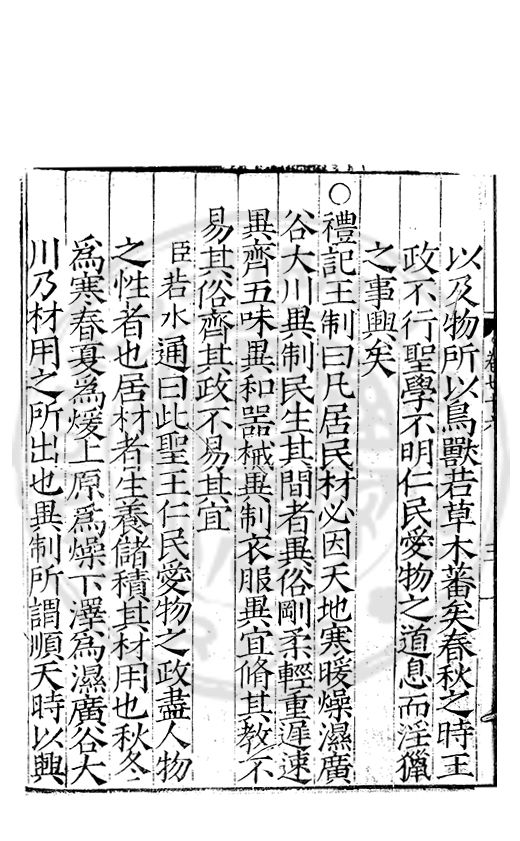 以及物所以鳥獸若草木蕃矣春秋之時王
政不行聖學不明仁民愛物之道息而淫獵
之事興矣
○禮記王制曰凡居民材必因天地寒暖燥濕廣
谷大川異制民生其間者異俗剛柔輕重遲速
異齊五味異和器械異制衣服異宜脩其教不
易其俗齊其政不易其宜
臣若水通曰此聖王仁民愛物之政盡人物
之性者也居材者生養儲積其材用也秋冬
爲寒春夏爲煖上原爲燥下澤爲濕廣谷大
川乃材用之所出也異制所謂順天時以興